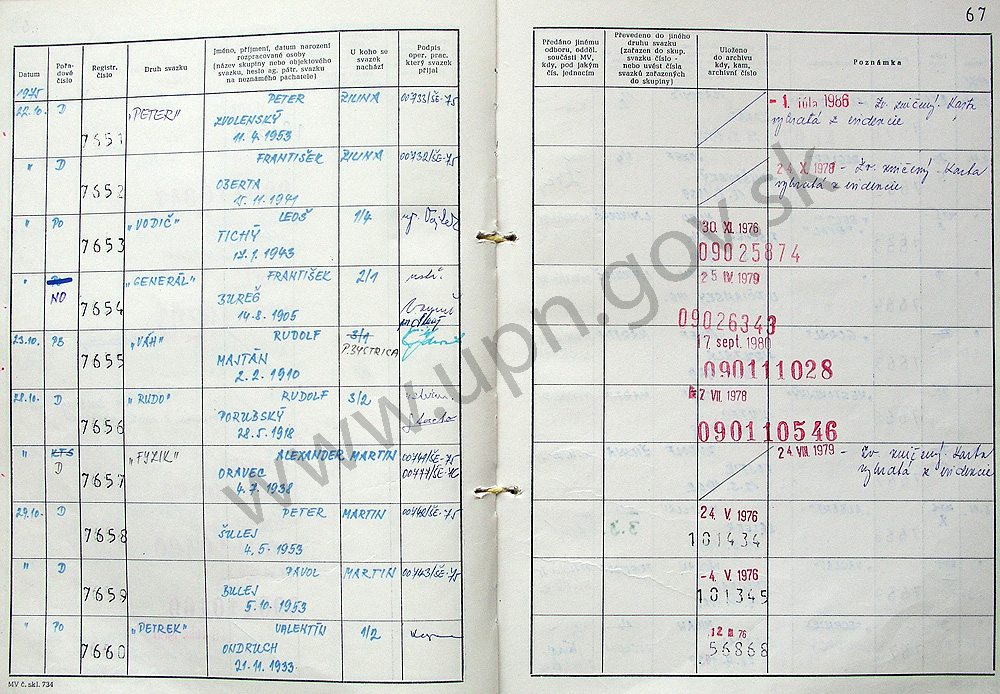 67
Datum
Pořadové číslo
Registr. číslo
Druh svazku
Jméno, příjmení, datum narození rozpracované osoby (název skupiny nebo objektového svazku, heslo ag. pátr. svazku na neznámého pachatele)
U koho se svazek nachází
Podpis oper. prac. který svazek přijal
Předáno jinému odboru, odděl. součásti MV, kdy, pod jakým čís. jednacím
Převedeno do jiného druhu svazku (zařazen do skup. svazku číslo - nebo uvést čísla svazků zařazených do skupiny)
Uloženo do archivu kdy, kam, archivní číslo
Poznámka
1975
22.10. D 7651 "PETER" PETER ŽILINA 00733/ŠE-75
ZVOLENSKÝ
11.4.1953
- 1. júla 1986 - Zv. zničený. Karta
vybratá z evidencie
" D 7652 FRANTIŠEK ŽILINA 00732/ŠE-75
OBERTA
15.11.1941
24. X. 1978 - Zv. zničený. Karta
vybratá z evidencie
" PO 7653 "VODIČ" LEOŠ 1/4
TICHÝ
1943
30. XI. 1976
09025874
" NO 7654 "GENERÁL" FRANTIŠEK 2/1
BUREŠ
14.8.1905
25 IV. 1979
09026343
23.10. PS 7655 "VÁH" RUDOLF 3/1
P. BYSTRICA
MAJTÁN
2.2.1910
17. sept. 1980
090111028
28.10. D 7656 "RUDO" RUDOLF 3/2
PORUBSKÝ
28.5.1918
2 VII. 1978
090110546
" KTS D 7657 "FYZIK" ALEXANDER MARTIN
ORAVEC
4.7.1938
24 VIII. 1979 - Zv. zničený Karta
vybratá z evidencie
29.10. D 7658 PETER MARTIN
ŠULEJ
4.5.1953
24. V. 1976
101434
" D 7659 PAVOL MARTIN 00743/ŠE-75
BULEJ
5.10.1953
-4. V. 1976
101345
" PO 7660 "PETREK" VALENTÍN 1/2
ONDRUCH
21.11.1933
12 III 76
56868
MV č. skl. 734
www.upn.gov.sk